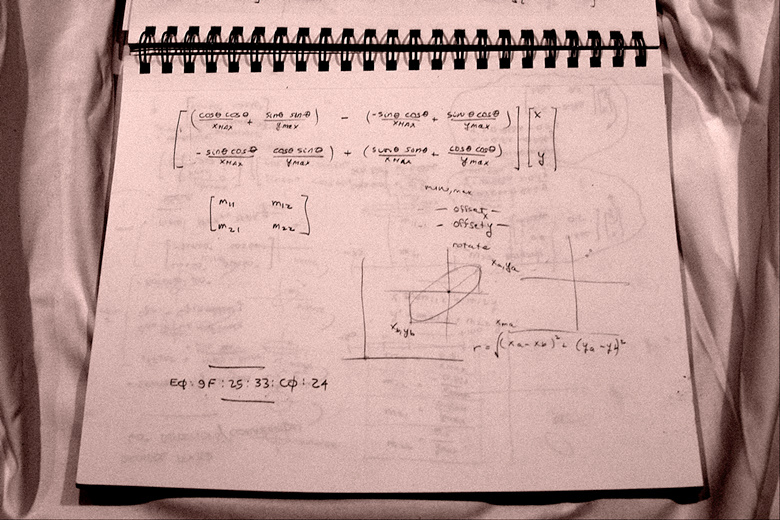 [ (cosθ cosθ / xMAX + sinθ sinθ / ymax) - (-sinθ cosθ / xMAX + sinθ cosθ / ymax) ] [ x
-sinθ cosθ / xMAX cosθ sinθ / ymax) + (sinθ sinθ / xMAX + cosθ cosθ / ymax) ] y ]
[ m11 m12
m21 m22 ]
min, max
- offsetx -
- offsety -
rotate
xa, ya
xb, yb
xma
r = √(xa - xb)² + (ya - yb)²
EΦ:9F:25:33:CΦ:24